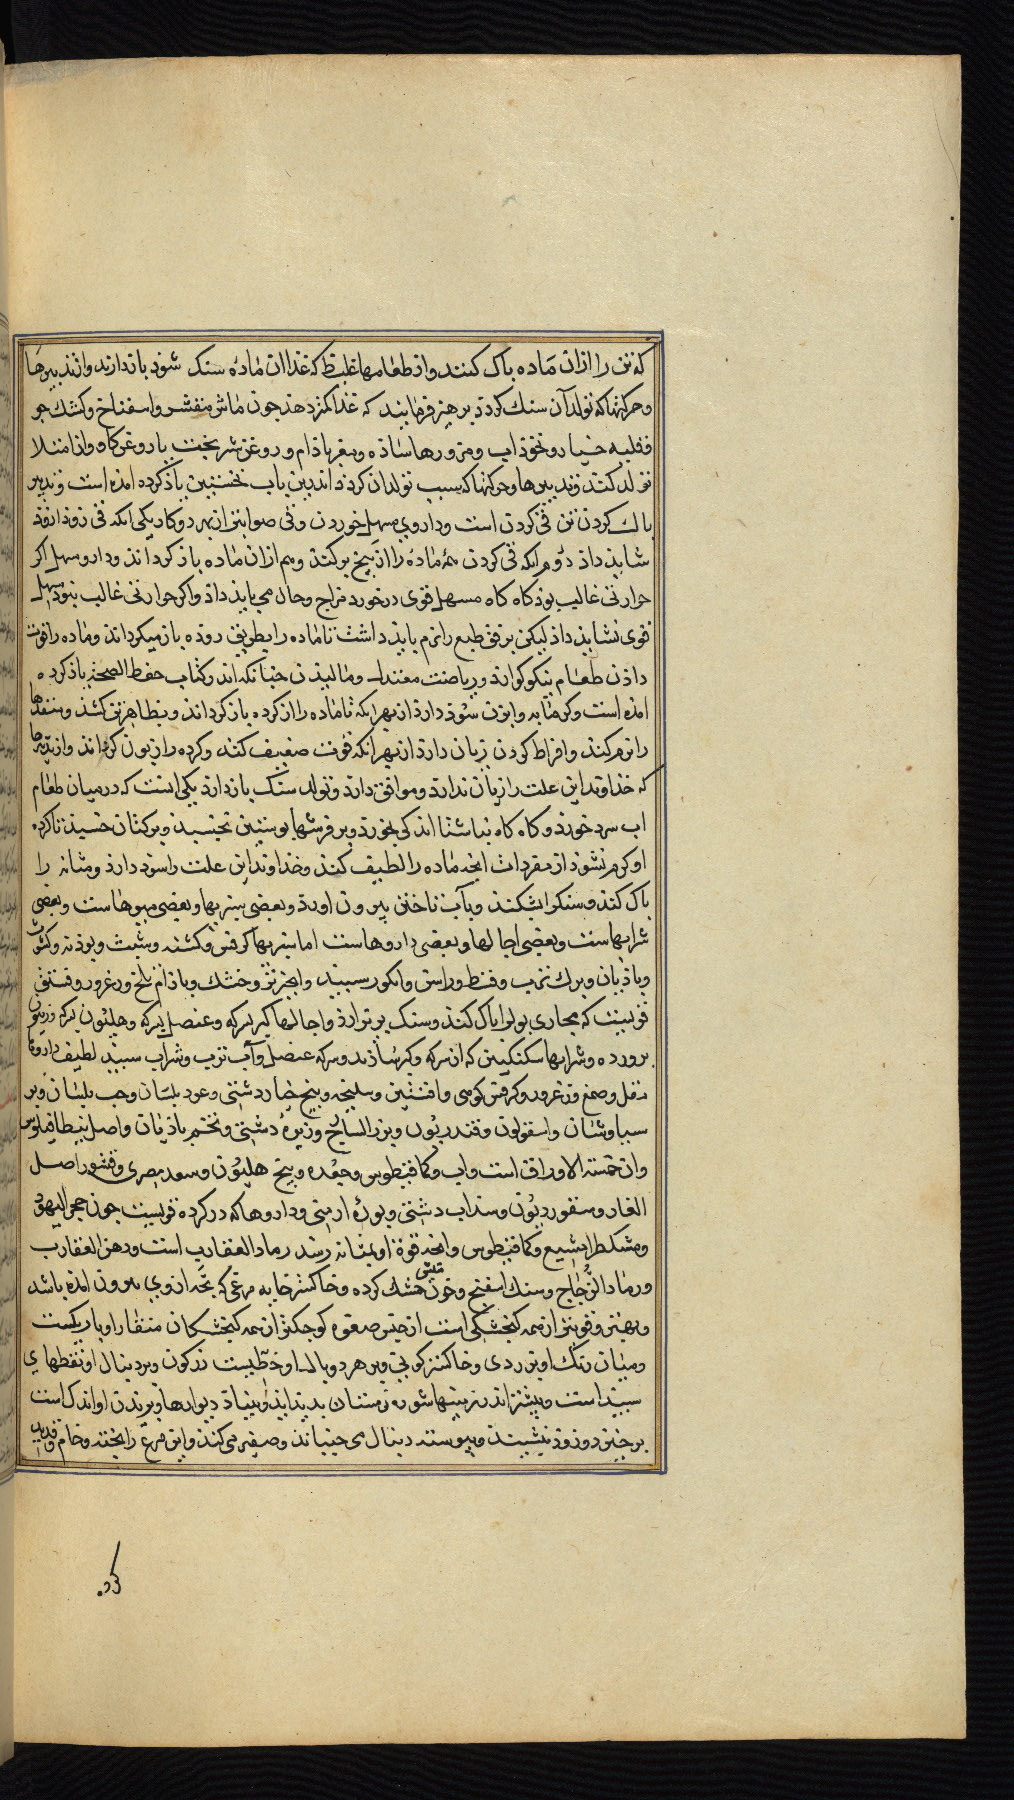 که تن را ازان ماده باک کنند واز طعامهاء غلیظ که غذا ان ماده سنک شود بازدارند واز تدبیرها
وحرکتها که تولد آن سنک کردد برهیز فرمایند که غذا کمتر دهد جون ماش مقشر واسفناخ وکشک جو
وقلیه خیار ونخوذاب ومزورها ساذه ومغز باذام وروغن شیربخت یا روغن کاو واز امتلا
تولد کند وتدبیرها وحرکتها که سبب تولد ان کردد اندرین باب نخستین یاذ کرده امذه است وتدبیر
باک کردن تن قی کردن است وداروی مسهل خوردن وقی صوابتر از بهر دو کار یکی انکه قی زود ازود
شاید داذ دوم انکه قی کردن همه ماده را از بیخ برکند وهم ازان ماده باز کرداند ودارو مسهل اکر
حرارتی غالب بوذ کاه کاه مسهل قوی درخورد مزاج وحال می باید داذ واکر حرارتی غالب نبود مسهل
قوی نشاید داذ لیکن برفق طبع را نرم باید داشت تا ماده را بطریق روده باز میکرداند وماده را قوت
داذن طعام نیکو کوارد وریاضت معتدل ومالیذن جنانکه اندر کتاب حفظ الصحة یاذ کرده
امذه است وکرمابه وابزن سوذ دارد از بهر انکه تا ماده را از کرده باز کرداند وبظاهر تن کشد ومنفذها
را نرم کند وافراط کردن زیان دارد از بهر انکه قوت ضعیف کند وکرده را زبون کرداند واز تدبیرها
که خذاوند این علت را زیان ندارد وموافق دارد وتولد سنک باز دارد یکی انست که درمیان طعام
اب سرد خورد وکاه کاه بناشتا اندکی بخورد وبر فرشهاء بوستین نخسبد وبر کتان خسبد تا کرده
او کرم نشود از مفردات انجه ماده را لطیف کند وخداوند این علت را سود دارد ومثانه را
باک کند وسنکرا بشکند وبآب تاختن بیرون اورد وبعضی سبزیها وبعضی میوها ست وبعضی
شرابهاست وبعضی اجالها وبعضی داروهاست اما سبزیها کرفس وکشنه وشبث وبوذنه وکشوث
وباذیان وبرک ترب وقنطور واس وانکور سبید وانجیر تر وخشک وباذام تلخ وزعرور وفستق
قویست که مجاری بول را باک کند وسنک برتوارذ واجالها کبر بسرکه وعنصل بسرکه وهلیون بسرکه وزیتون
برورده وشرابها سکنکبین که از سرکه وکبر سازند وسرکه عنصل وآب ترب وشراب سبید لطیف داروها
مقل وصمغ وزعرور وکرفس کوهی وافسنتین وسلیخه وبیخ خیار دشتی وعود بلسان وحب بلسان وبر
سیاوشان واسقولون وقندریون وبزر السایح وزیره دشتی وتخم باذیان واصل بنطافیلوس
وان خمسة الاوراق است واب وکمافیطوس وجعده وبیخ هلیون وسعد مصری وقشور اصل
الغار وسقوردیون وسداب دشتی وبوره ارمنی وداروها که در کرده قویست جون حجر الیهود
ومشکطرامشیع وکمافیطوس وانجه قوة او بمثانه رسد رماد العقارب است ودهن العقارب
ورماد الزجاج وسنک اسفنج وخون تیس خشک کرده وخاکستر خایه مرغی که بجه ازوی بیرون امذه باشد
وبهتر وقویتر از همه کنجشکی است از جنس صعوه کوجکتر از همه کنجشکان منقار او باریکست
ومیان رنک او بزردی وخاکستر کونی وبر هر دو بال او خطیست زرکون وبر دنبال او نقطهای
سبید است وبیشتر اندر زمینها شوره زمستان بدید آید وبنیاد دیوارها وبریدن او اندک است
برخیزد وزود نشیند وبیوسته دنبال می جنباند وصفیر می کند واین مرغ را بخته وخام وقدید
کرده